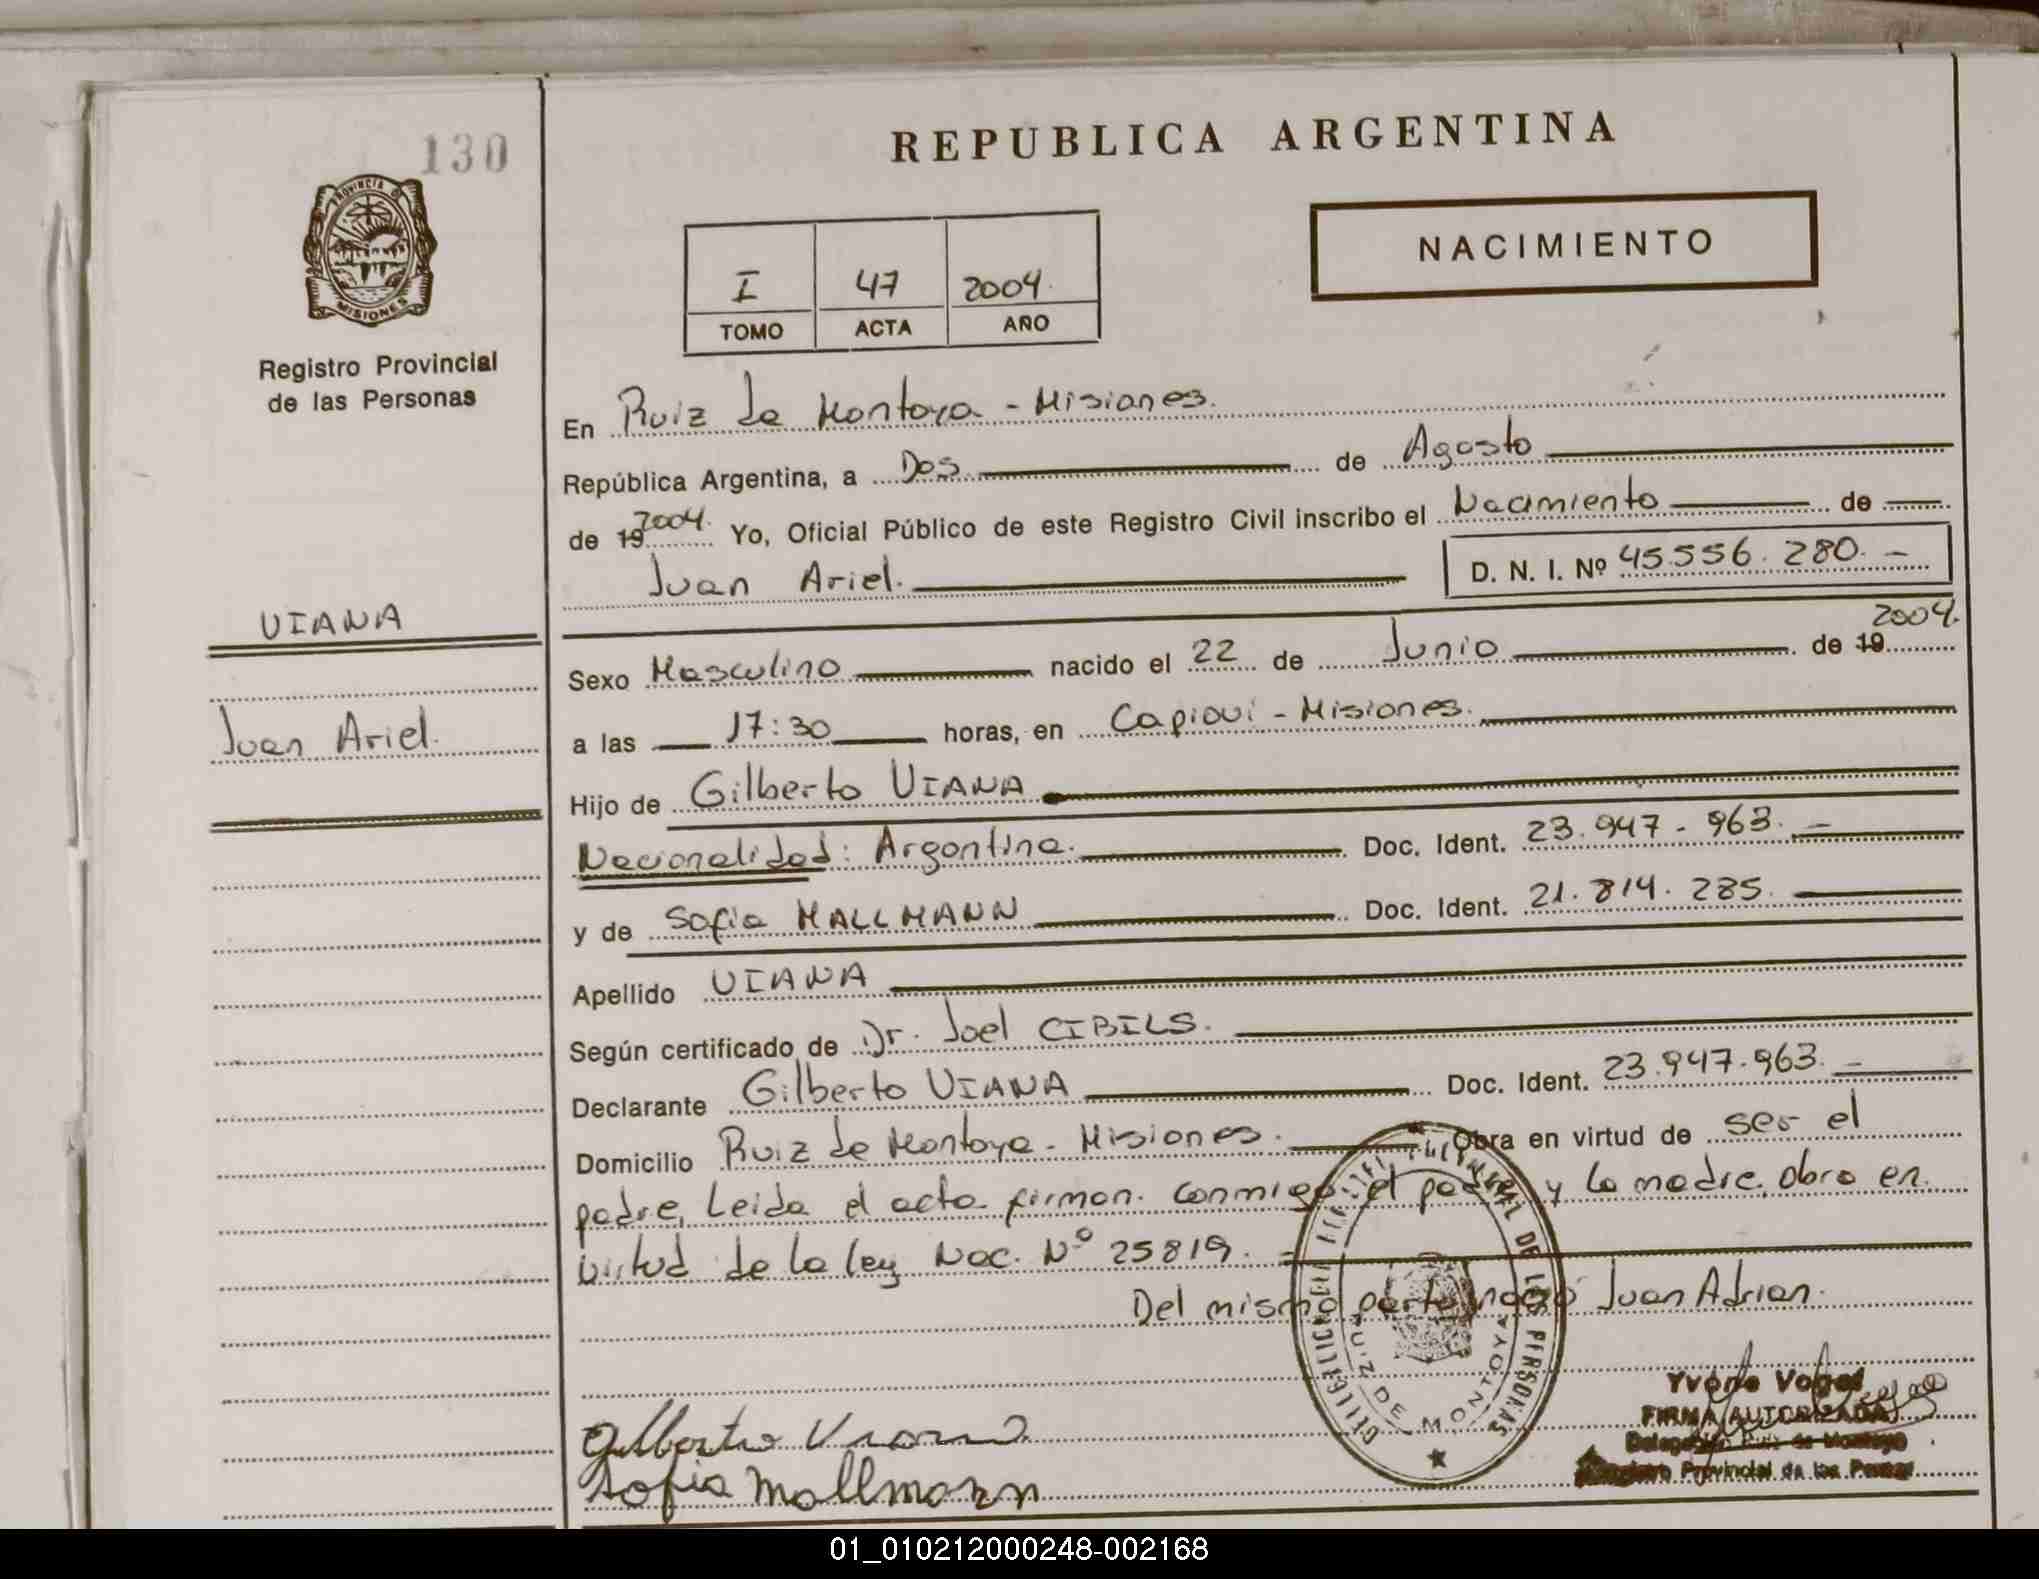 130
PROVINCIA D
MISIONES
Registro Provincial
de las Personas
VIANA
Juan Ariel.
REPUBLICA ARGENTINA
NACIMIENTO
I 47 2004.
TOMO ACTA AÑO
En Ruiz de Montoya - Misiones.
República Argentina, a Dos de Agosto
de 19 2004. Yo, Oficial Público de este Registro Civil inscribo el Nacimiento de
Juan Ariel. D. N. I. Nº 45.556.280.-
Sexo Masculino nacido el 22 de Junio de 19 2004.
a las 17:30 horas, en Capioví - Misiones.
Hijo de Gilberto VIANA
Nacionalidad: Argentina. Doc. Ident. 23.947.963.-
y de Sofia MALLMANN Doc. Ident. 21.814.285.
Apellido VIANA
Según certificado de Dr. Joel CIBILS.
Declarante Gilberto VIANA Doc. Ident. 23.947.963.-
Domicilio Ruiz de Montoya - Misiones. Obra en virtud de ser el
padre, Leida el acta firman conmigo el padre y la madre, obra en
virtud de la ley Nac. Nº 25819.
Del mismo parto nació Juan Adrian.
DE LAS PERSONAS
RUIZ DE MONTOYA
Gilberto Viana
Sofia Mallmann
Yvone Vogel
FIRMA AUTORIZADA
Delegación Ruiz de Montoya
Registro Provincial de las Person
01_010212000248-002168